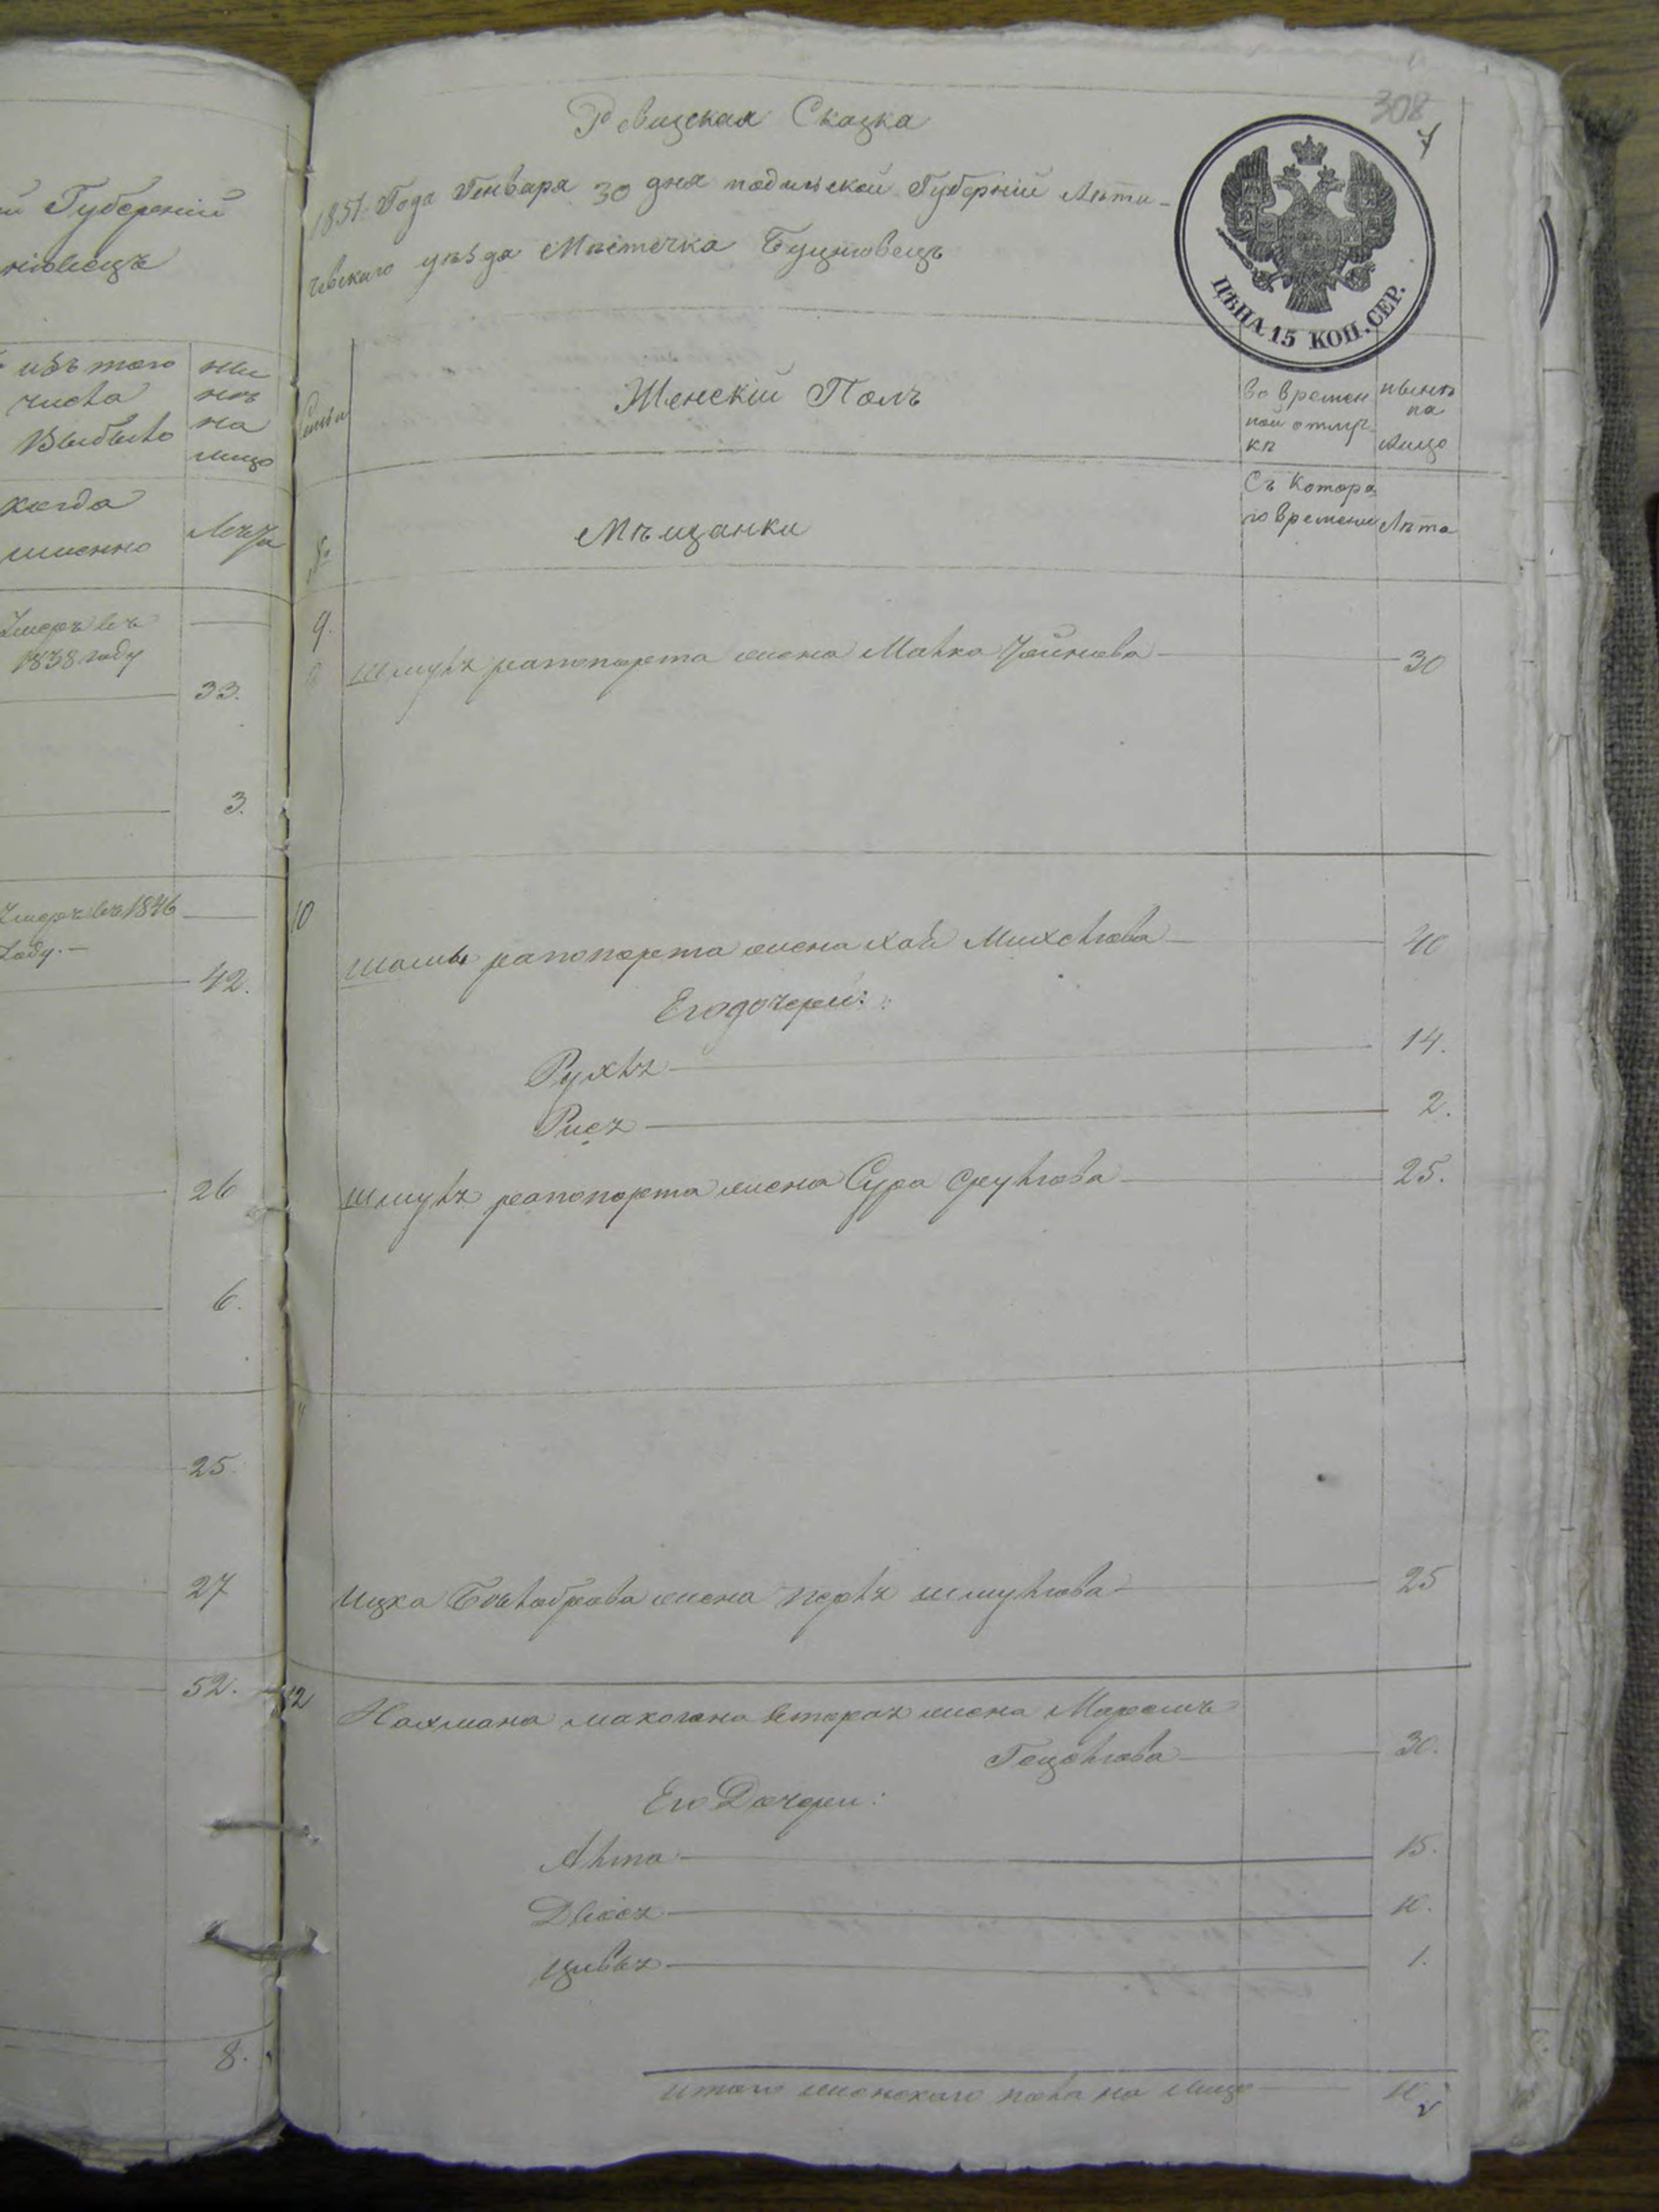 й Губерніи
ніовецъ
изъ того
числа
Выбыло
ны
нѣ
на
лицо
когда
именно
Лѣта
Умеръ въ
1838 году
33.
3.
Умеръ въ 1846
году.
42.
26
6.
25
27
52.
8.
308
7
Ревизская Сказка
1851 Года Генваря 30 дня подольской Губерніи Лѣти-
чевскаго уѣзда Мѣстечка Буцновецъ
ЦѢНА 15 КОП. СЕР.
Семьи
Женскій Полъ
во времен
ной отлуч
кѣ
нынѣ
на
лицо
№
Мѣщанки
Съ Котора
го времени
Лѣта
9.
Шмуля рапопорта жена Малка 30
10
рапопорта жена Хая Михелова 40
Его дочери:
Рухля 14.
Рися 2.
Шмуля рапопорта жена Сура Срулова 25.
11
Ицка жена перля шмулова 25
12
Нахмана макогона вторая жена Маріемъ
Гецелова 30.
Его Дочери:
Алта 15.
Двося 10.
Цивья 1.
итого женскаго пола на лицо 10